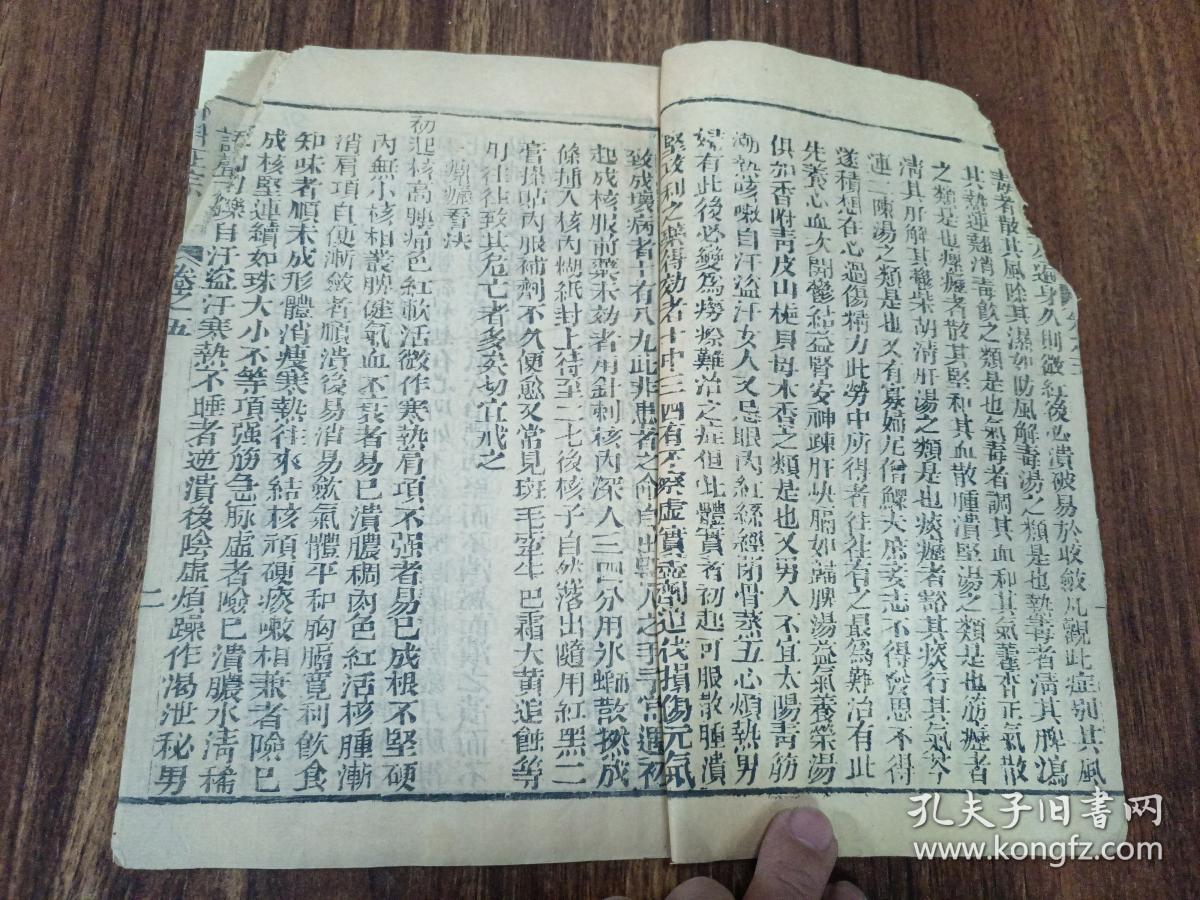 遍身久則微紅後必潰破易於收斂凡觀此症別其風
毒者散其風除其濕如防風解毒湯之類是也熱毒者清其脾瀉
其熱連翹消毒飲之類是也氣毒者調其血和其氣藿香正氣散
之類是也瘰癧者散其堅和其血散腫潰堅湯之類是也筋癧者
清其肝解其鬱柴胡清肝湯之類是也痰癧者豁其痰行其氣芩
連二陳湯之類是也又有寡婦尼僧鰥夫庶妾志不得發思不得
遂積想在心過傷精力此勞中所得者往往有之最為難治有此
先養心血次開鬱結益腎安神疎肝快膈如歸脾湯益氣養榮湯
俱加香附青皮山梔貝母木香之類是也又男人不宜太陽青筋
潮熱咳嗽自汗盜汗女人又忌眼內紅絲經閉骨蒸五心煩熱男
婦有此後必變為癆瘵難治之症但此體實者初起可服散腫潰
堅敗利之藥得効者十中三四有不察虛實妄劑迫伐損傷元氣
致成壞病者十有八九此非患者之命自出醫人之手予常遇初
起成核服前藥未効者用針刺核內深入三四分用氷螄散撚成
條插入核內糊紙封上待至二七後核子自然落出隨用紅黑二
膏搽貼內服補劑不久便愈又常見斑毛牽牛巴霜大黃追蝕等
劑往往致其危亡者多矣切宜戒之
瘰癧看法
初起核高腫痛色紅軟活微作寒熱肩項不强者易已成根不堅硬
內無小核相叢脾健氣血不衰者易已潰膿稠肉色紅活核腫漸
消肩項自便漸斂者順潰後易消易斂氣體平和胸膈寬利飲食
知味者順未成形體消瘦寒熱往來結核頑硬痰嗽相兼者險已
成核堅連續如珠大小不等項强筋急脉虛者險已潰膿水清稀
爍自汗盜汗寒熱不睡者逆潰後陰虛煩躁作渴泄秘男
卷之五
二
孔夫子旧书网
www.kongfz.com